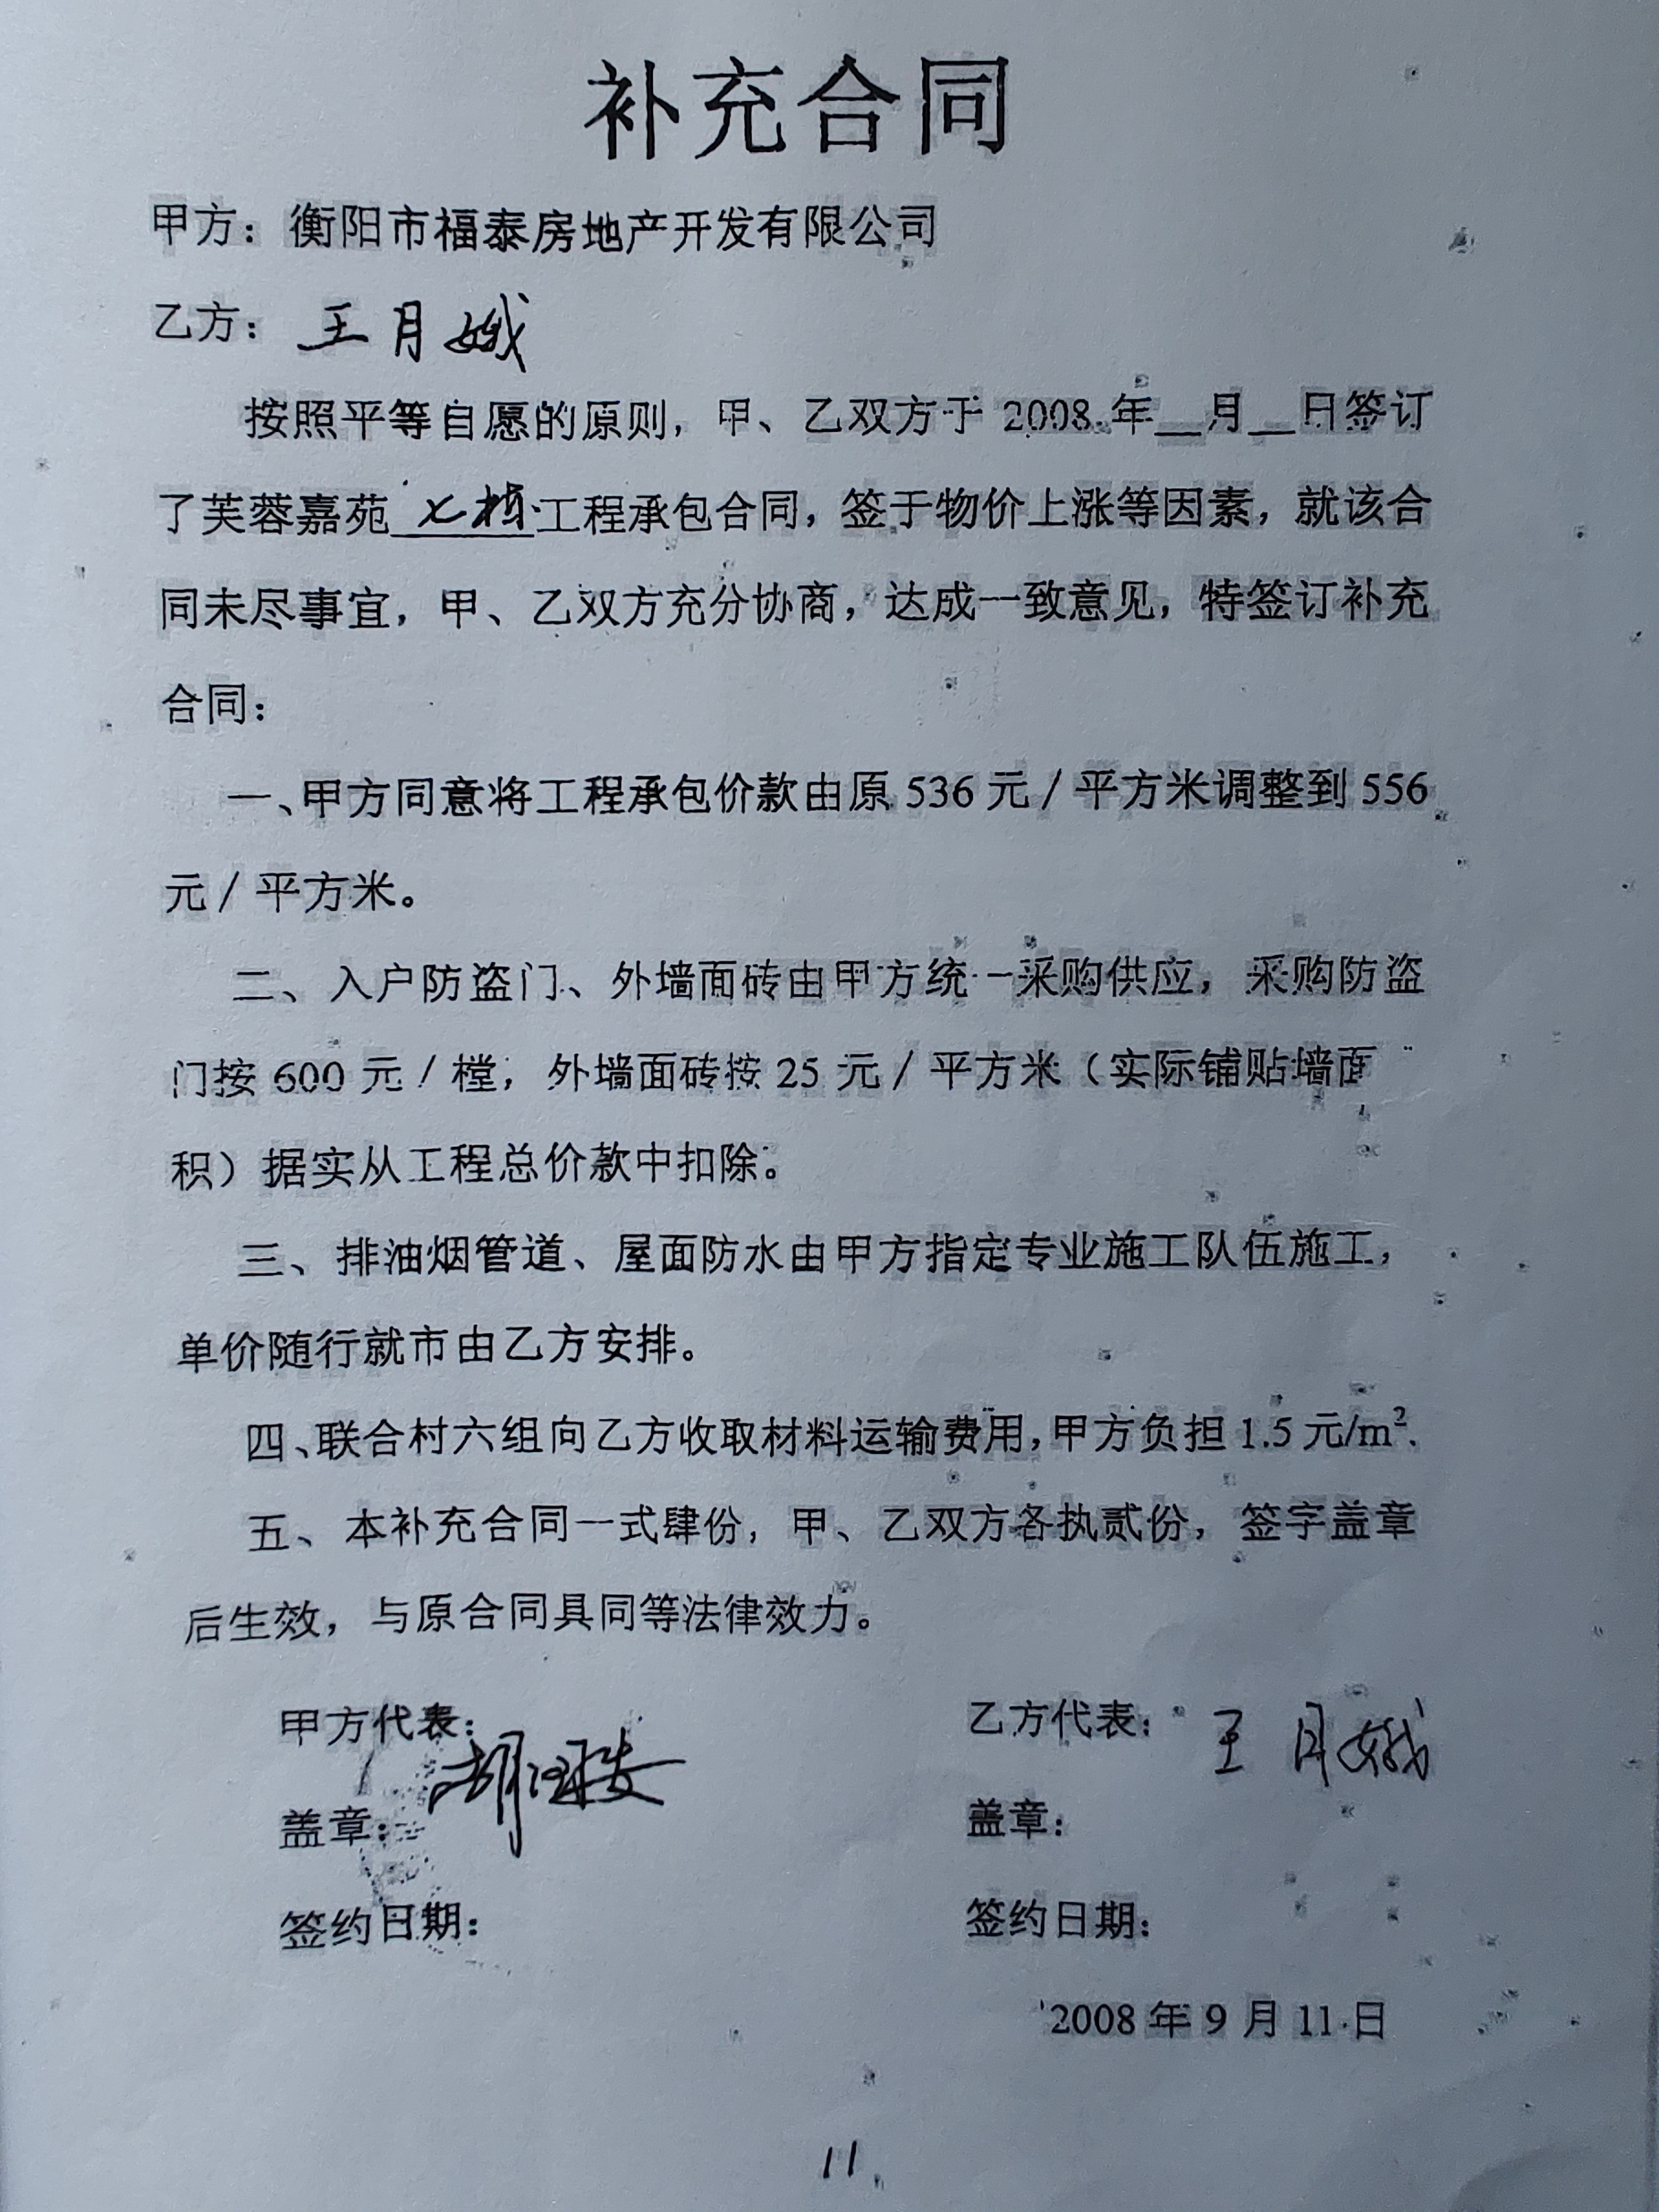 补充合同
甲方：衡阳市福泰房地产开发有限公司
乙方：王月娥
按照平等自愿的原则，甲、乙双方于 2008 年__月__日签订
了芙蓉嘉苑 七栋 工程承包合同，签于物价上涨等因素，就该合
同未尽事宜，甲、乙双方充分协商，达成一致意见，特签订补充
合同：
一、甲方同意将工程承包价款由原 536 元／平方米调整到 556
元／平方米。
二、入户防盗门、外墙面砖由甲方统一采购供应，采购防盗
门按 600 元／樘，外墙面砖按 25 元／平方米（实际铺贴墙面
积）据实从工程总价款中扣除。
三、排油烟管道、屋面防水由甲方指定专业施工队伍施工，
单价随行就市由乙方安排。
四、联合村六组向乙方收取材料运输费用，甲方负担 1.5 元/m².
五、本补充合同一式肆份，甲、乙双方各执贰份，签字盖章
后生效，与原合同具同等法律效力。
甲方代表： 乙方代表：王月娥
盖章： 盖章：
签约日期： 签约日期：
2008 年 9 月 11 日
11